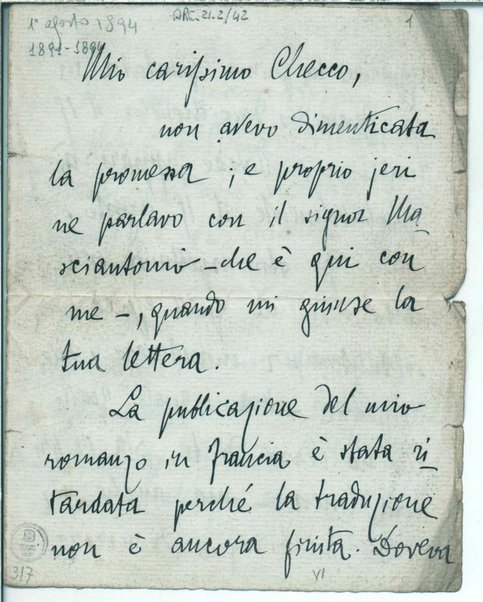 1° agosto 1894
ARC. 21. 2/42
1
1891-1894
Mio carissimo Checco,
non avevo dimenticata
la promessa; e proprio jeri
ne parlavo con il signor Ma
sciantonio - che è qui con
me -, quando mi giunse la
tua lettera.
La publicazione del mio
romanzo in Francia è stata ri
tardata perché la traduzione
non è ancora finita. Doveva
317
VI